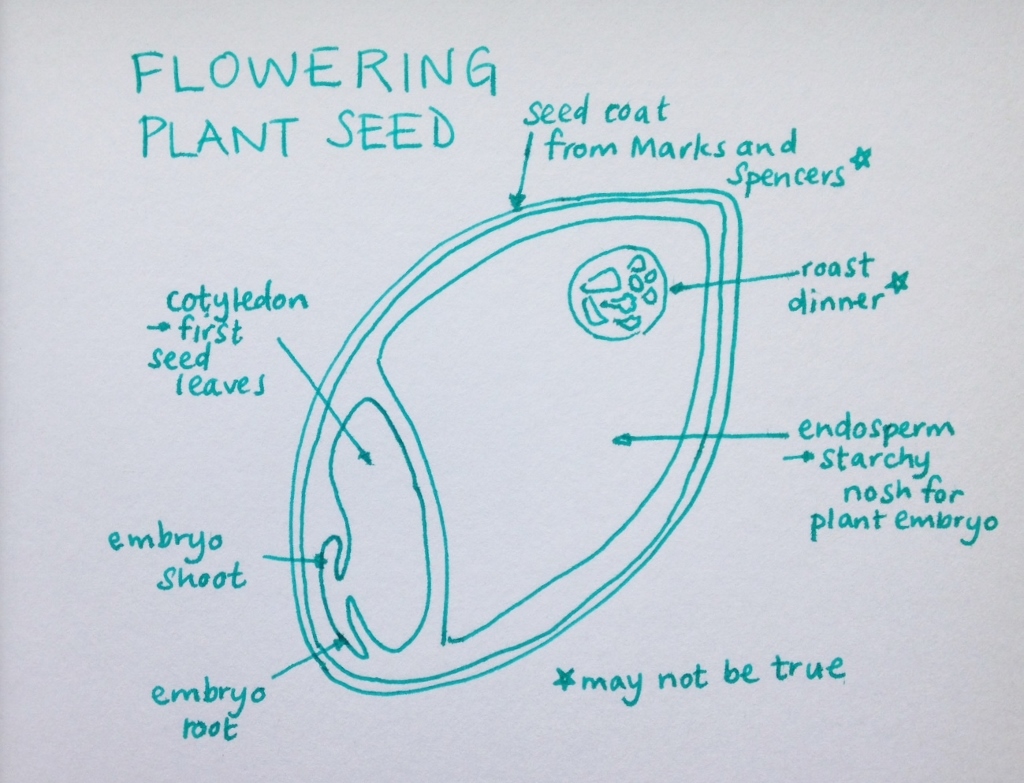 FLOWERING
PLANT SEED
seed coat
from Marks and
Spencers☆
roast
dinner☆
cotyledon
→ first
seed
leaves
endosperm
→ starchy
nosh for
plant embryo
embryo
shoot
embryo
root
☆may not be true